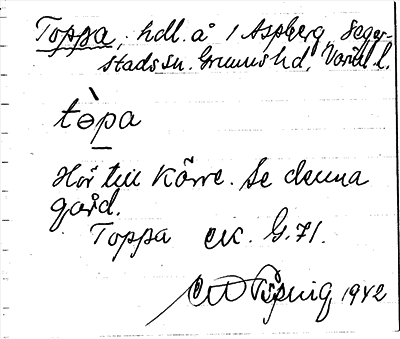 Toppa, hdl. å / Aspberg Seger-
stads sn. Grums hd, Värml l.
tòpa
Hör till Körre. Se denna
gård.
Toppa ek. G. 71.
1942